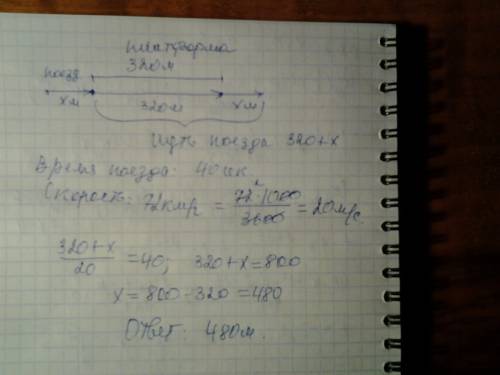 платформа
320м
поезд
х м 320м х м
Путь поезда 320+х
Время поезда: 40 сек.
Скорость: 72км/г = 72·1000/3600 = 20м/с.
320+х/20 = 40; 320+х=800
х = 800 - 320 = 480
Ответ: 480м.